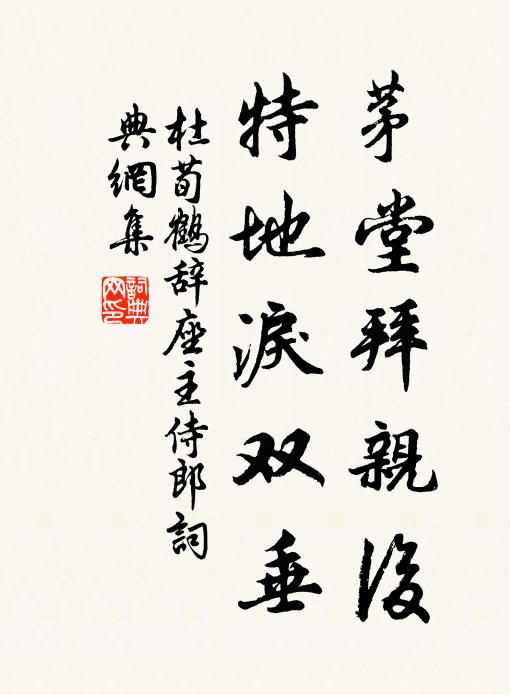 茅堂拜親後
特地淚双垂
杜荀鶴辞座主侍郎詞
典網集
詞典网印